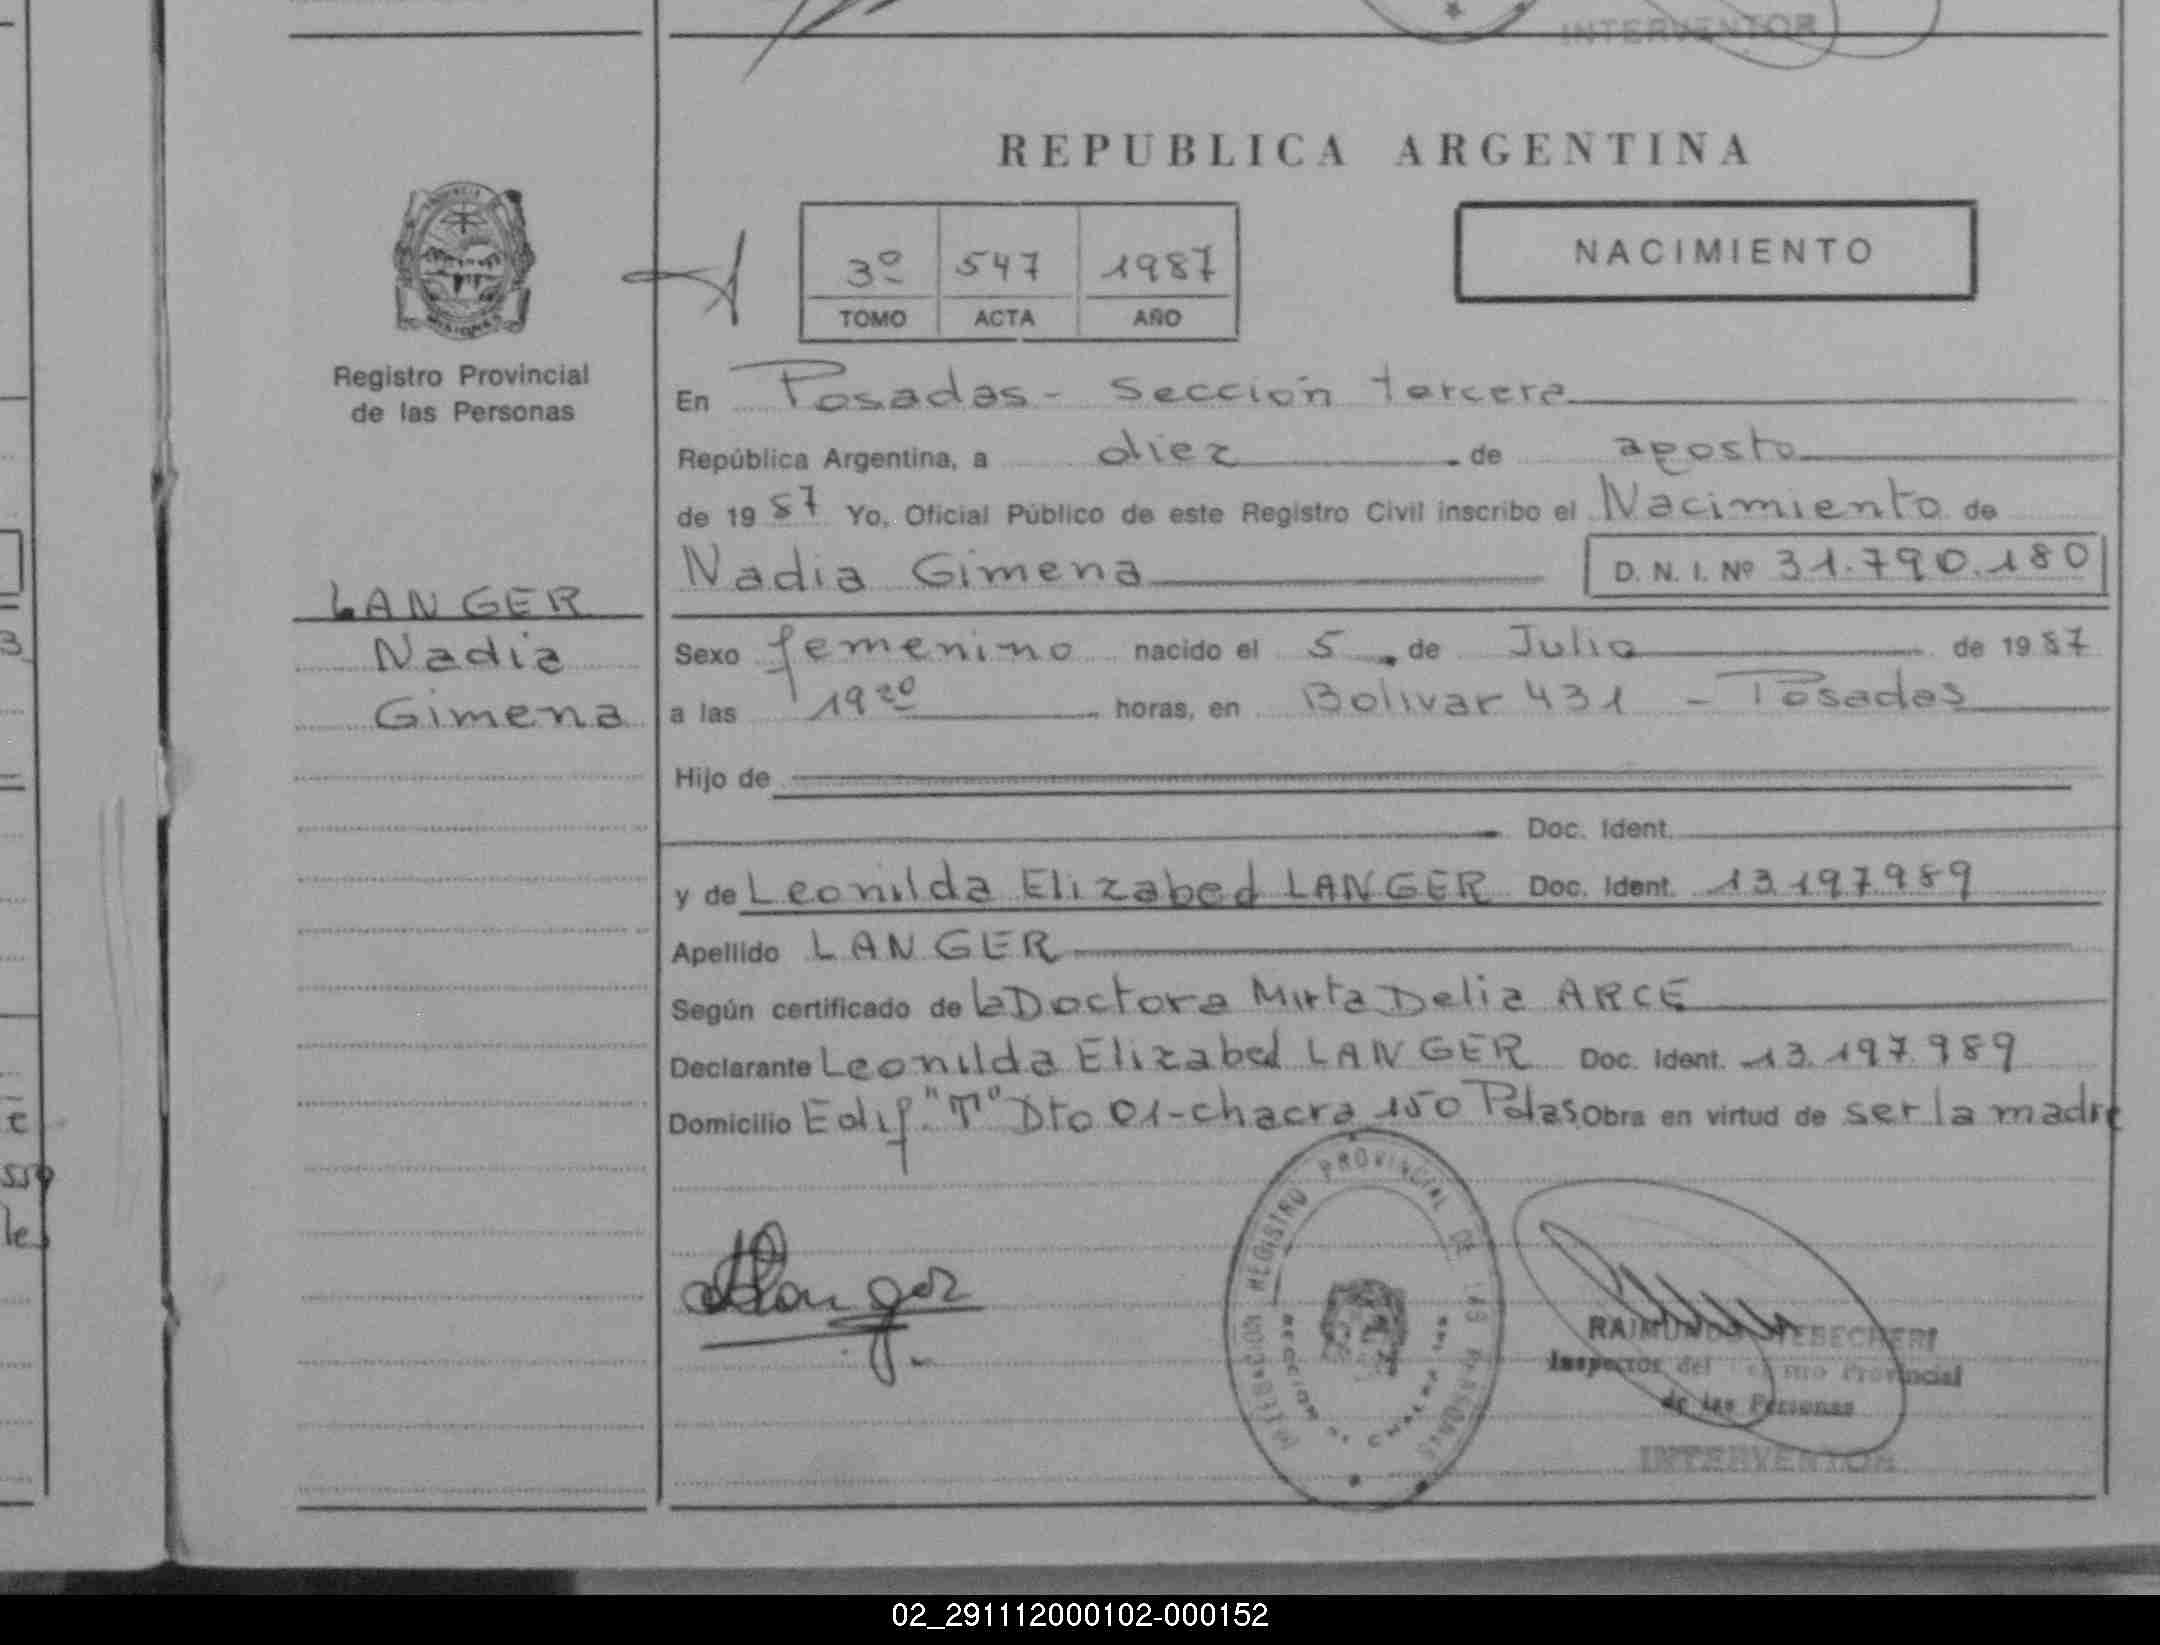 INTERVENTOR
REPUBLICA ARGENTINA
MISIONES
Registro Provincial
de las Personas
3º 547 1987
TOMO ACTA AÑO
NACIMIENTO
LANGER
Nadia
Gimena
En Posadas - Sección tercera
República Argentina, a diez de agosto
de 1987 Yo, Oficial Público de este Registro Civil inscribo el Nacimiento de
Nadia Gimena D. N. I. Nº 31.790.180
Sexo femenino nacido el 5 de Julio de 1987
a las 19 20 horas, en Bolivar 431 - Posadas
Hijo de
Doc. Ident.
y de Leonilda Elizabed LANGER Doc. Ident. 13.197.989
Apellido LANGER
Según certificado de la Doctora Mirta Delia ARCE
Declarante Leonilda Elizabed LANGER Doc. Ident. 13.197.989
Domicilio Edif. "T" Dto 01-chacra 150 Pdas. Obra en virtud de ser la madre
Langer
REGISTRO PROVINCIAL DE LAS PERSONAS
Inspector del Provincial
de las Personas
INTERVENTOR
02_291112000102-000152